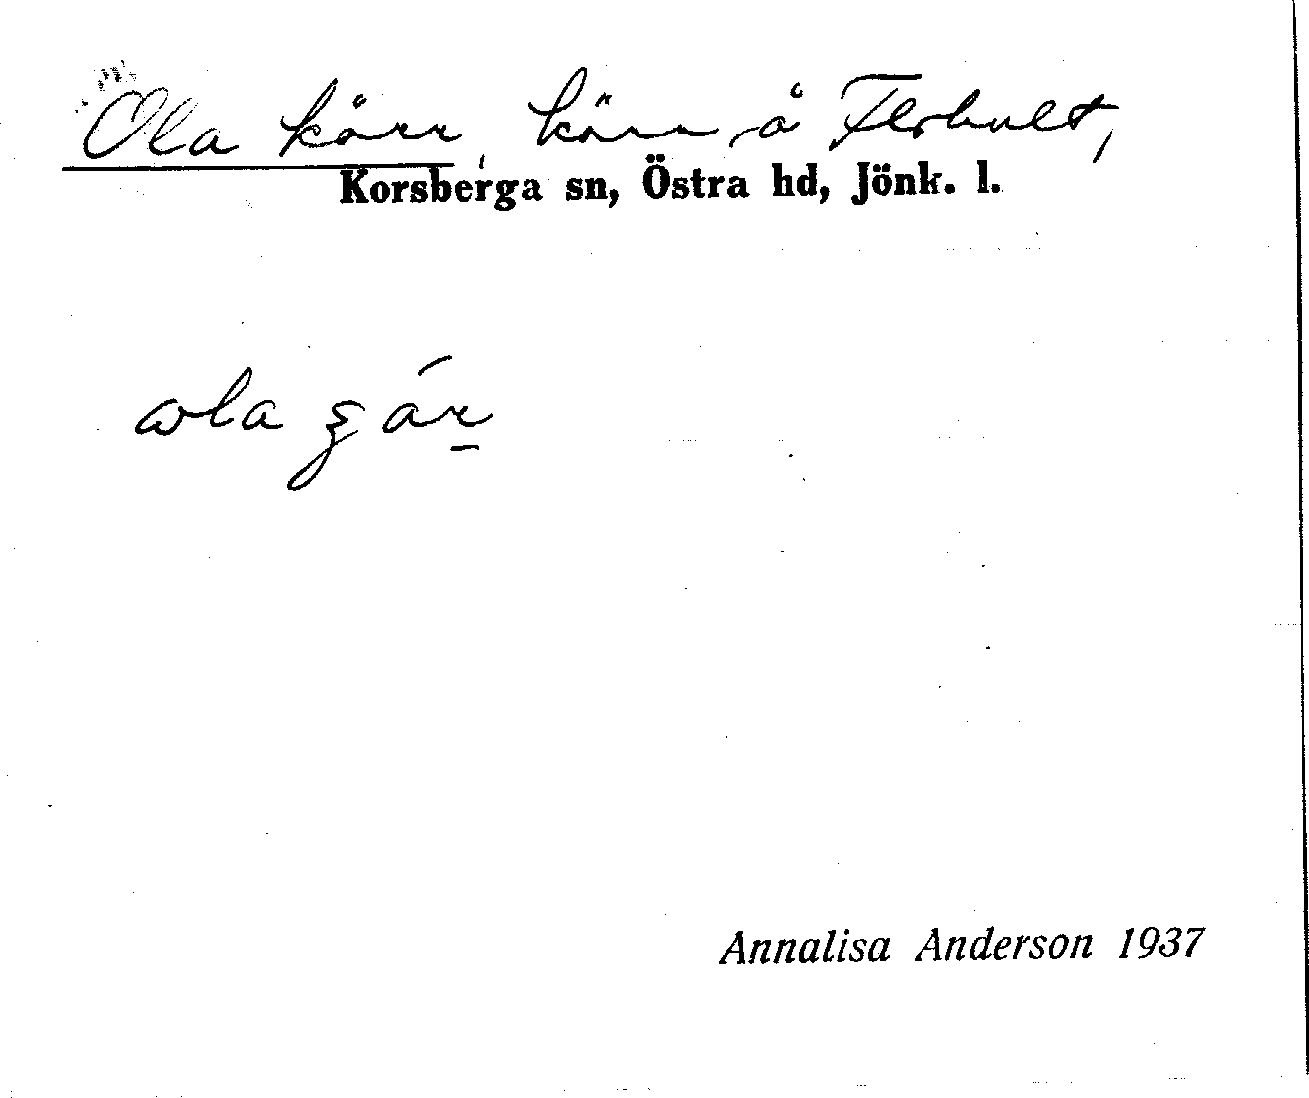 Ola kärr, kärr å Flerhult,
Korsberga sn, Östra hd, Jönk. l.
ωla ʂár
Annalisa Anderson 1937